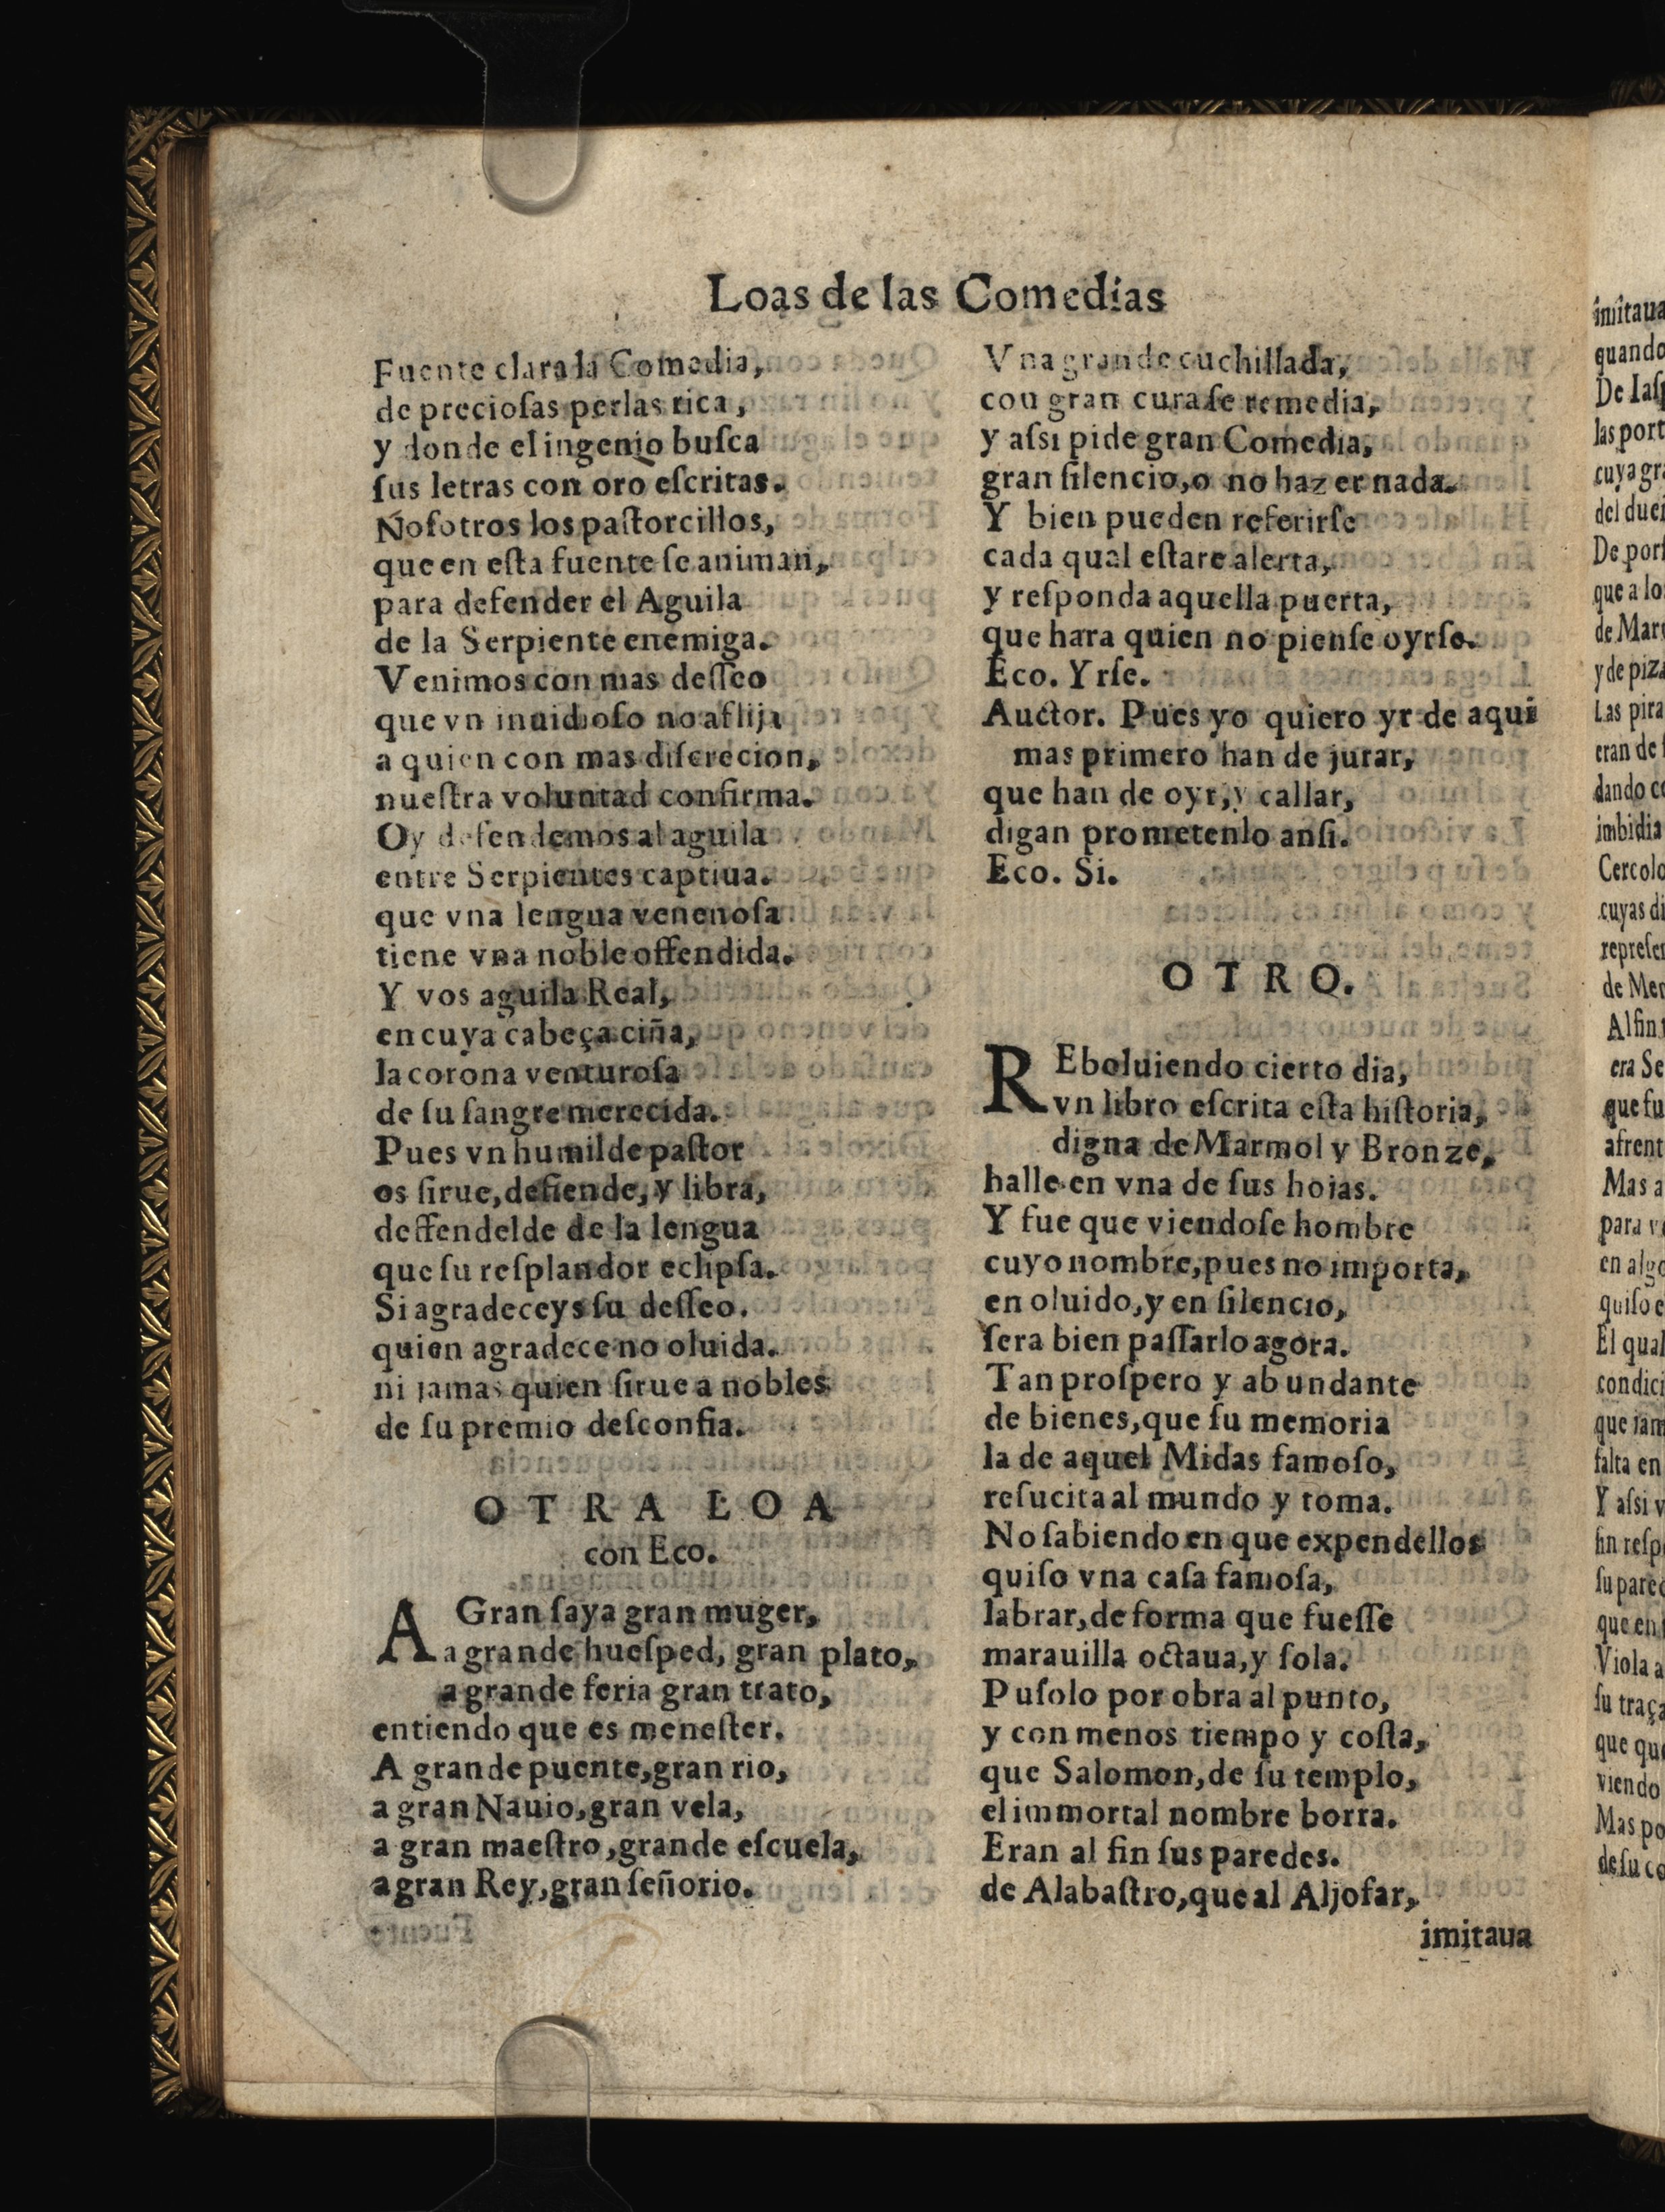 Loas de las Comedias
Fuente clara la Comedia,
de precioſas perlas rica,
y donde el ingenio buſca
ſus letras con oro eſcritas.
Noſotros los paſtorcillos,
que en eſta fuente ſe animan,
para defender el Aguila
de la Serpiente enemiga.
Venimos con mas deſſeo
que vn inuidioſo no aflija
a quien con mas diſcrecion,
nueſtra voluntad confirma.
Oy defendemos al aguila
entre Serpientes captiua.
que vna lengua venenoſa
tiene vna noble offendida.
Y vos aguila Real,
en cuya cabeça ciña,
la corona venturoſa
de ſu ſangre merecida.
Pues vn humilde paſtor
os ſirue, defiende, y libra,
deffendelde de la lengua
que ſu reſplandor eclipſa.
Si agradeceys ſu deſſeo.
quien agradece no oluida.
ni jamas quien ſirue a nobles
de ſu premio deſconfia.
OTRA LOA
con Eco.
A Gran ſaya gran muger,
a grande hueſped, gran plato,
a grande feria gran trato,
entiendo que es meneſter.
A grande puente, gran rio,
a gran Nauio, gran vela,
a gran maeſtro, grande eſcuela,
a gran Rey, gran ſeñorio.
Vna grande cuchillada,
cou gran cura ſe remedia,
y aſsi pide gran Comedia,
gran ſilencio, o no hazer nada.
Y bien pueden referirſe
cada qual eſtare alerta,
y reſponda aquella puerta,
que hara quien no pienſe oyrſe.
Eco. Yrſe.
Auctor. Pues yo quiero yr de aqui
mas primero han de jurar,
que han de oyr, y callar,
digan prometenlo anſi.
Eco. Si.
OTRO.
REboluiendo cierto dia,
vn libro eſcrita eſta hiſtoria,
digna de Marmol y Bronze,
halle en vna de ſus hojas.
Y fue que viendoſe hombre
cuyo nombre, pues no importa,
en oluido, y en ſilencio,
ſera bien paſſarlo agora.
Tan proſpero y abundante
de bienes, que ſu memoria
la de aquel Midas famoſo,
reſucita al mundo y toma.
No ſabiendo en que expendellos
quiſo vna caſa famoſa,
labrar, de forma que fueſſe
marauilla octaua, y ſola.
Puſolo por obra al punto,
y con menos tiempo y coſta,
que Salomon, de ſu templo,
el immortal nombre borra.
Eran al fin ſus paredes.
de Alabaſtro, que al Aljofar,
imitaua
imitaua
quando
las port
cuya gra
que a lo
de Mar
y de piza
Las pira
eran de
dando co
imbidia
Cercolo
cuyas di
repreſe
de Mer
Al fin
era Se
que fu
afrent
Mas a
para v
en algo
quiſo e
El qual
condici
que jam
falta en
Y aſsi v
ſin reſp
ſu pared
que en
Viola a
ſu traça
que que
viendo
Mas po
de ſu co